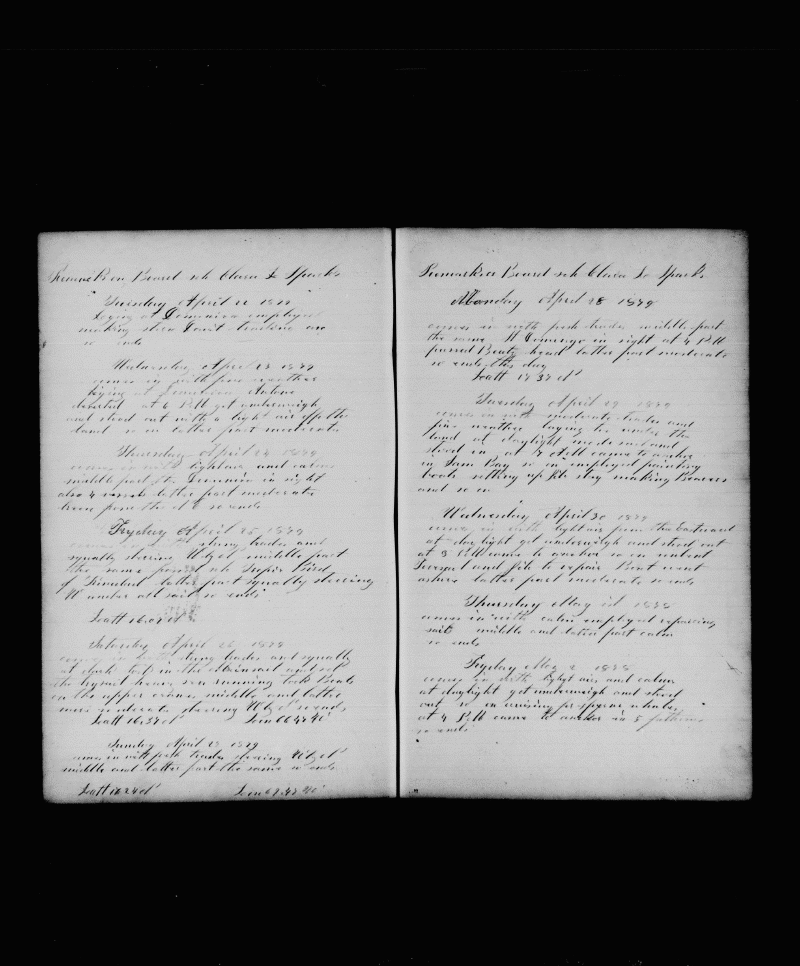 Remarks on Board sch Clara L Sparks
Tuesday April 22 1879
Laying at Dominica employed
making
so ends
Wednesday April 23 1879
comes in with fine weather
laying at Dominica Antone
deserted at 6 PM got underweigh
and stood out with a light air off the
land so in latter part moderate
Thursday April 24 1879
comes in with light airs and calms
middle part the same Dominica in sight
also 4 vessels latter part moderate
breeze from the so ends
Fryday April 25 1879
comes in with strong trades and
squally steering W middle part
the same passed sch
of latter part squally steering
W under all sail so ends
Latt 16.04
Saturday April 26 1879
comes in with strong trades and squally
at dark took in the Mainsail and set
the trysail heavy sea running took Boats
on the upper cranes middle and latter
more moderate steering so ends
Latt 16.37 Lon 66.44 40
Sunday April 27 1879
comes in with fresh trades steering
middle and latter part the same so ends
Latt Lon
Remarks on Board sch Clara L Sparks
Monday April 28 1879
comes in with fresh trades middle part
the same St Domingo in sight at 4 PM
passed Beata head latter part moderate
so ends this day
Latt 17.37
Tuesday April 29 1879
comes in with moderate trades and
fine weather laying to under the
land at daylight made sail and
stood in at 4 came to anchor
in Bay so in employed painting
boats setting up Jib stay making
and so on
Wednesday April 30 1879
comes in with light air from the Eastward
at daylight got underweigh and stood out
at 3 PM came to anchor so in unbent
Foresail and Jib to repair Boat went
ashore latter part moderate so ends
Thursday May 1st 1879
comes in with calm employed repairing
sails middle and latter part calm
so ends
Fryday May 2 1879
comes in with light airs and calm
at daylight got underweigh and stood
out so in cruising for sperm whales
at 4 PM came to anchor in 5 fathoms
so ends